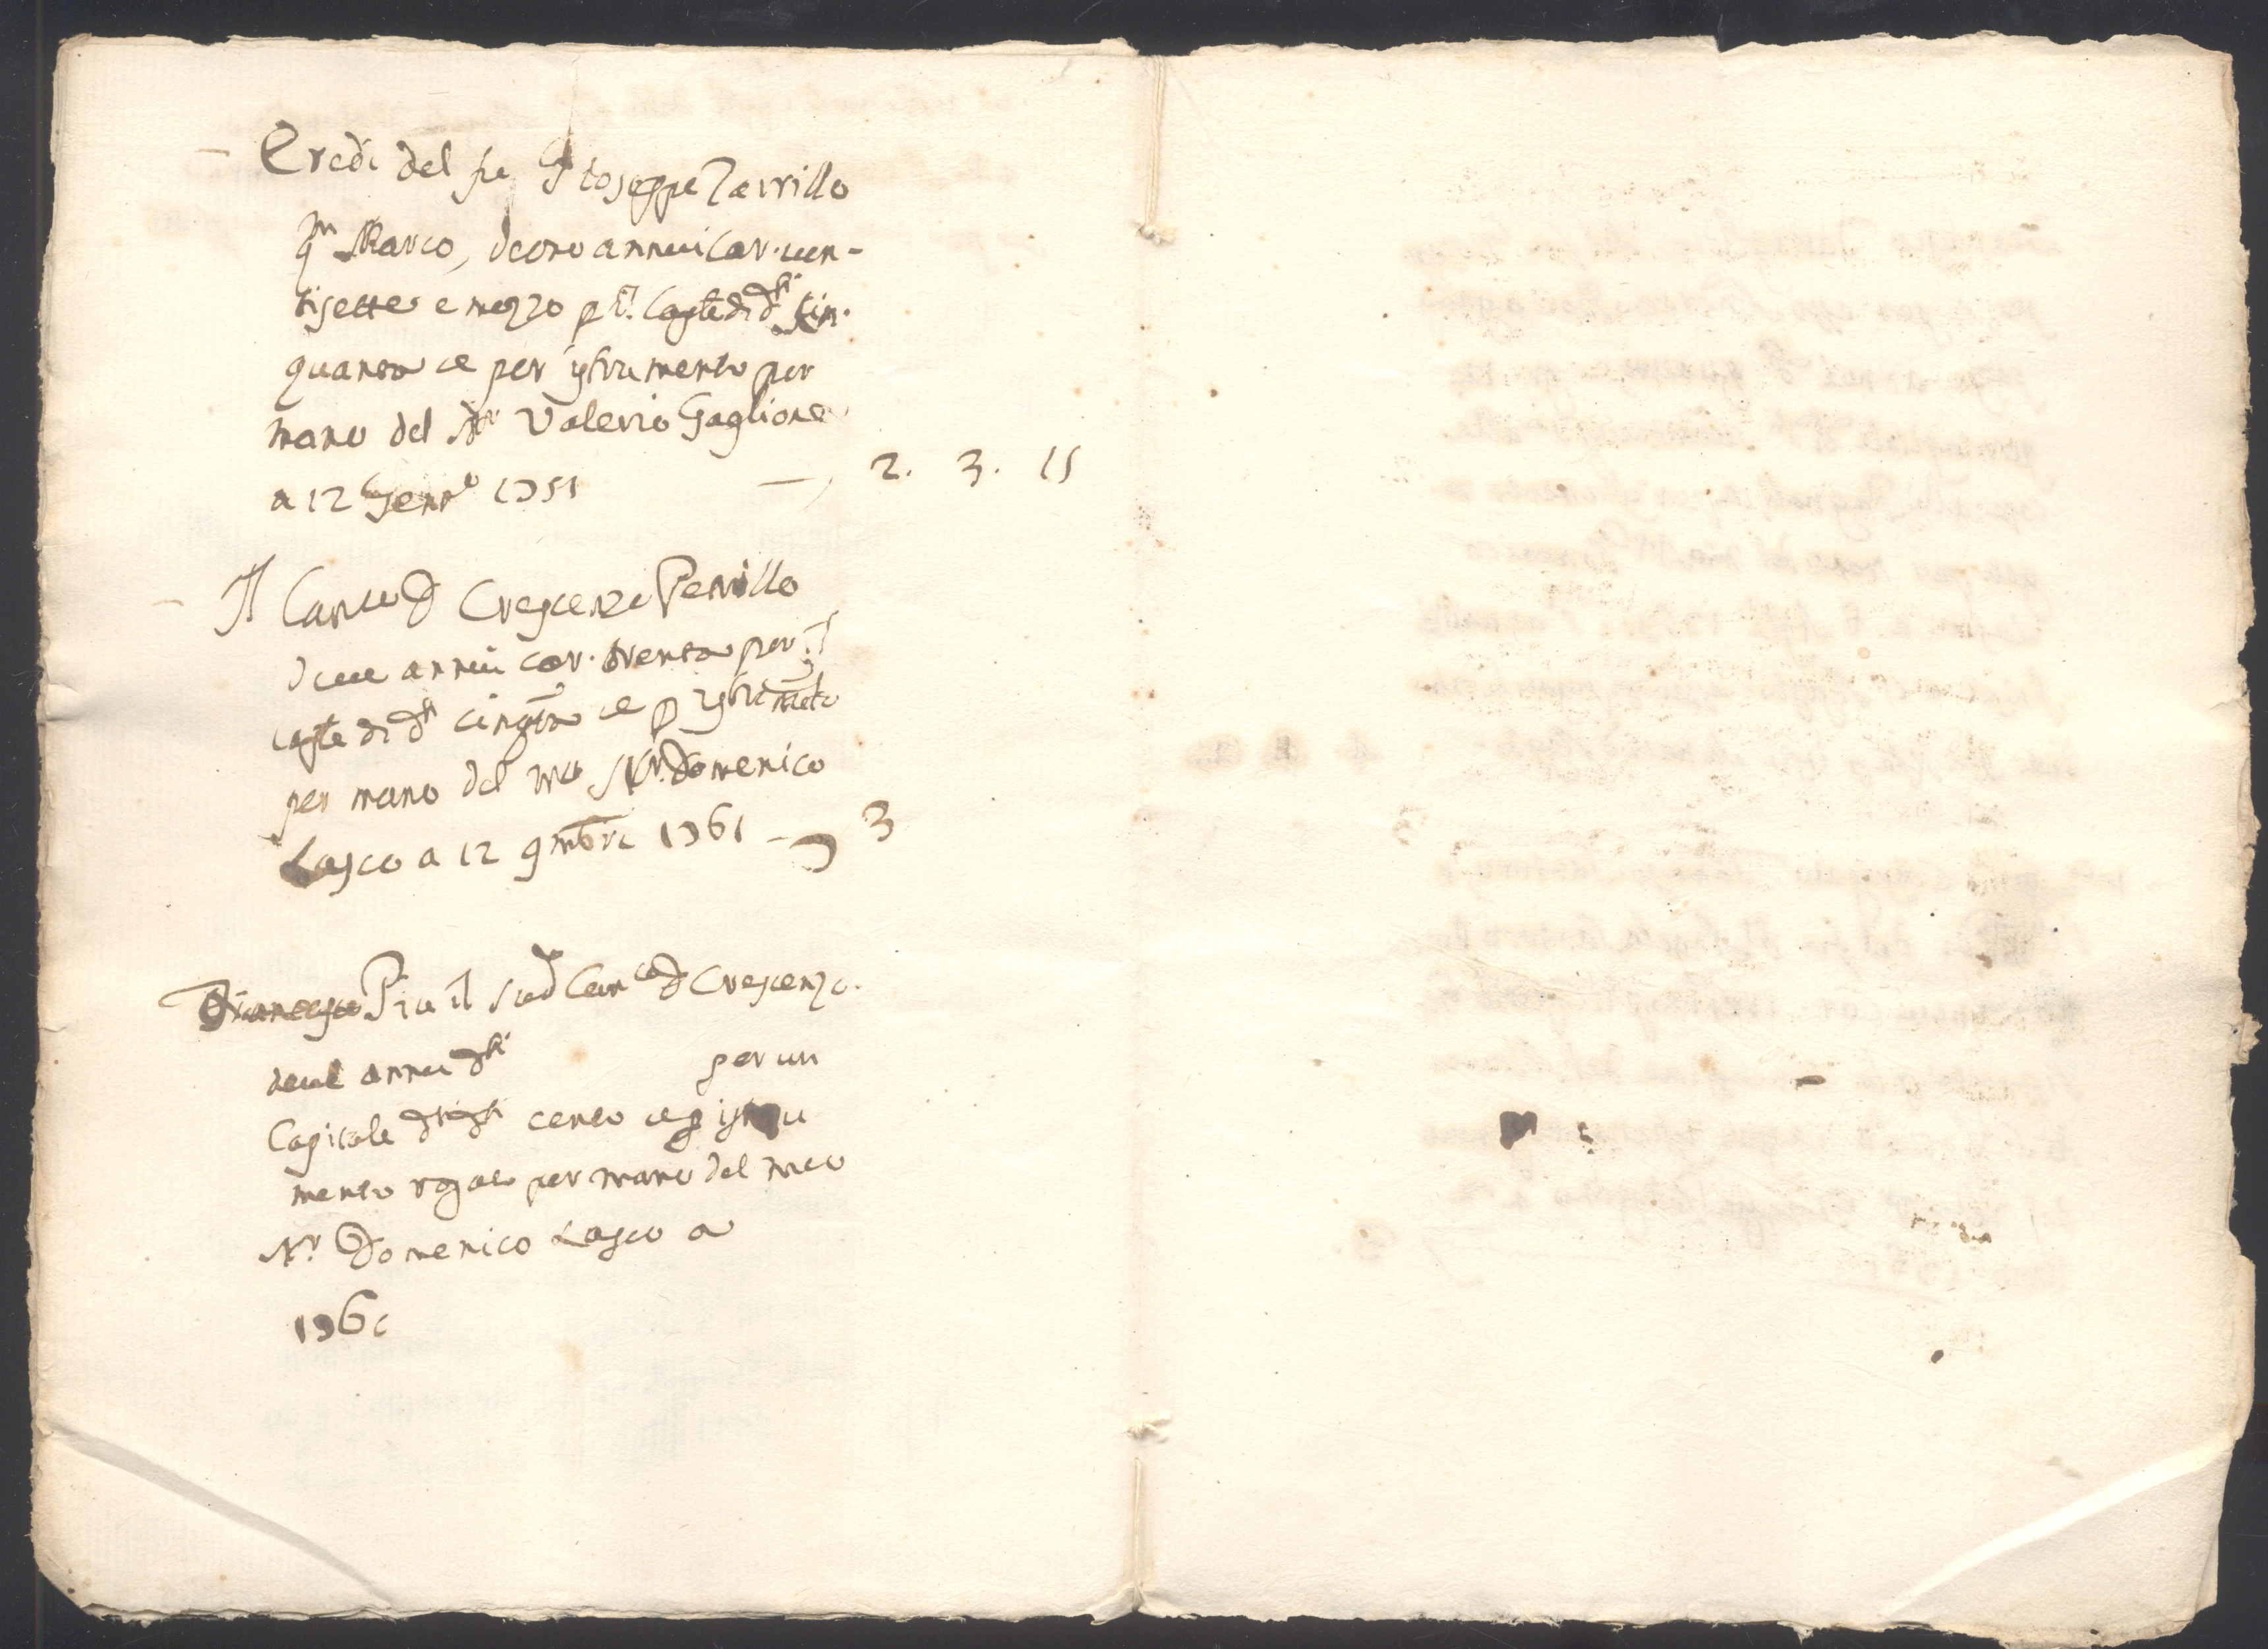 Eredi del fu Gioseppe Zarrillo
qm Marco, deono annui car. ven-
tisette e mezzo p il caple di dti cin-
quanta ce per istrumento per
mano del Nr Valerio Gaglione
a 12 Genro 1751 — 2. 3. 15
Il Canco D Crescenzo Perrillo
deve annui car. trenta per il
caple di dti cinqta ce p istrumeto
per mano del mco Nr. Domenico
Lasco a 12 9mbre 1761 — 3
Più il sudo Canco D Crescenzo
deve annui dti per un
Capitale di dti cento ce p istru
mento rogato per mano del mco
Nr. Domenico Lasco a
176